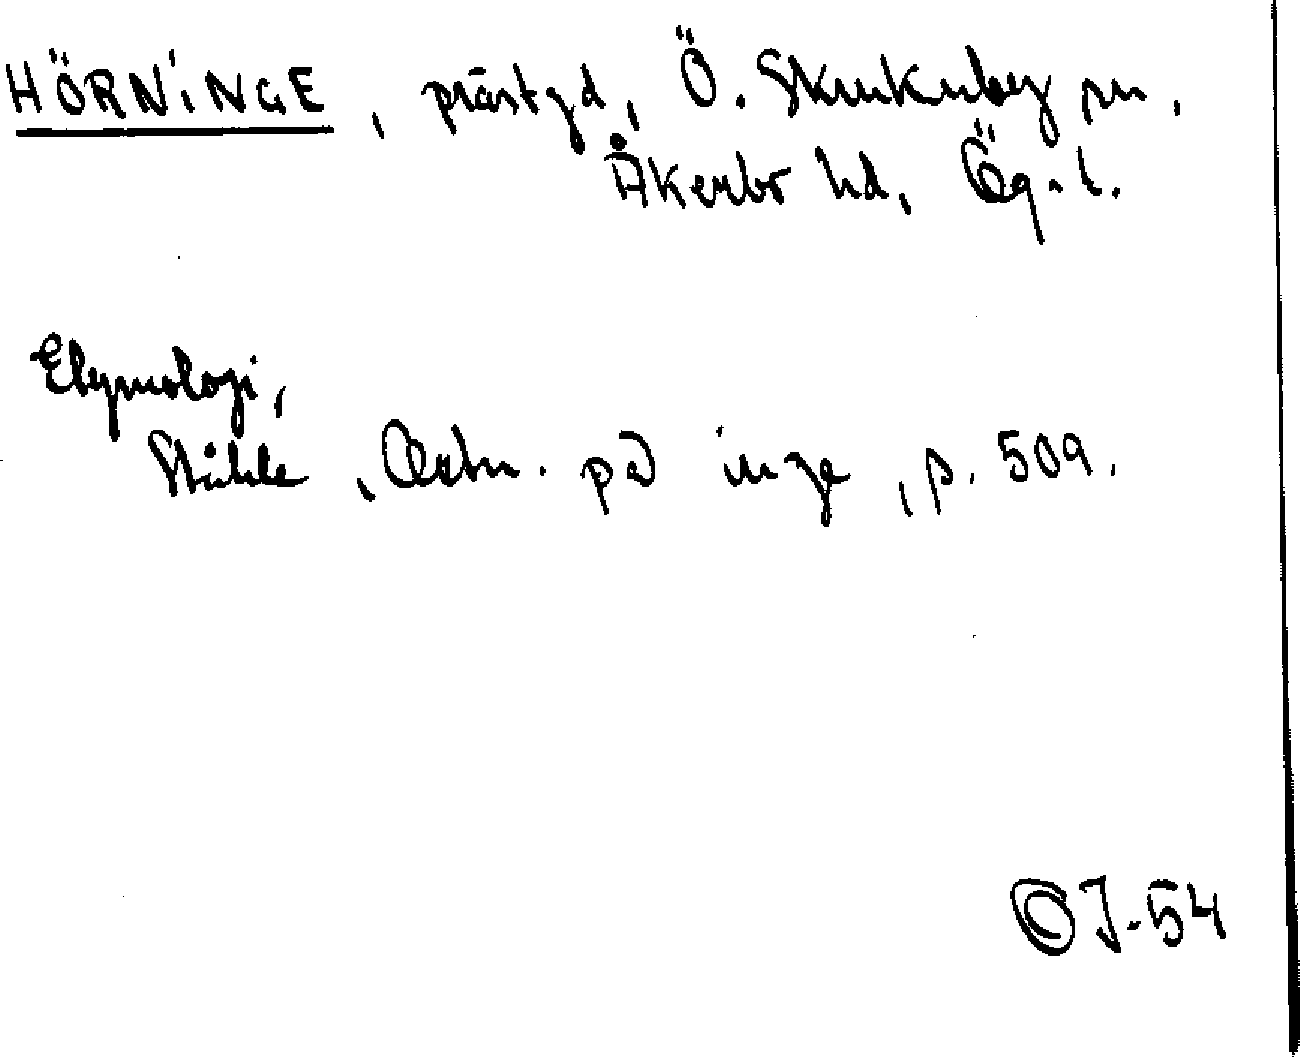 HÖRNINGE, prästgd, Ö. Skrukeby sn,
Åkerbo hd, Ög. l.
Etymologi,
Ståhle, Ortn. på inge, p. 509.
OJ-54